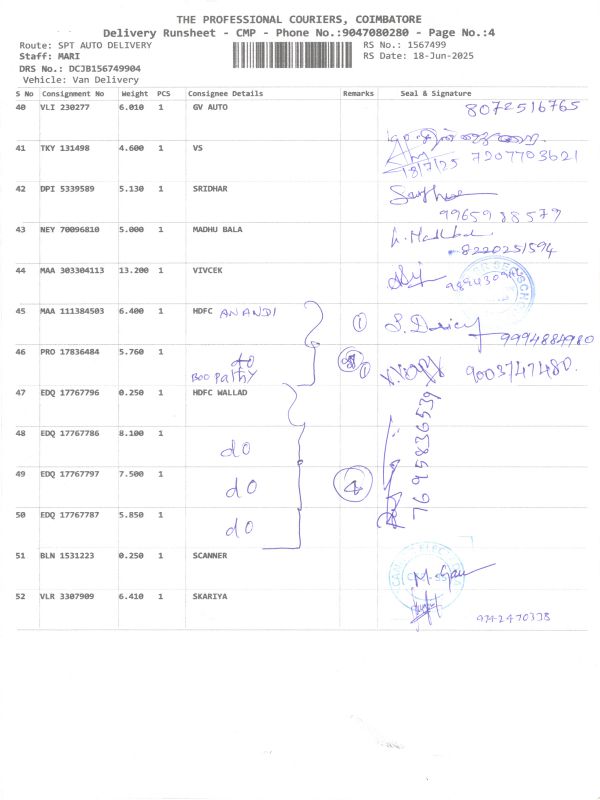 THE PROFESSIONAL COURIERS, COIMBATORE
Delivery Runsheet - CMP - Phone No.:9047080280 - Page No.:4
Route: SPT AUTO DELIVERY RS No.: 1567499
Staff: MARI RS Date: 18-Jun-2025
DRS No.: DCJB156749904
Vehicle: Van Delivery
S No Consignment No Weight PCS Consignee Details Remarks Seal & Signature
40 VLI 230277 6.010 1 GV AUTO 8072516765
41 TKY 131498 4.600 1 VS
18/7/25 7207703621
42 DPI 5339589 5.130 1 SRIDHAR
9965988577
43 NEY 70096810 5.000 1 MADHU BALA
8220251594
44 MAA 303304113 13.200 1 VIVCEK
45 MAA 111384503 6.400 1 HDFC ANANDI 1
9994884980
46 PRO 17836484 5.760 1 do 1 9003747480.
Boopathy
47 EDQ 17767796 0.250 1 HDFC WALLAD 7695836539
48 EDQ 17767786 8.100 1 do
49 EDQ 17767797 7.500 1 do 4
50 EDQ 17767787 5.850 1 do
51 BLN 1531223 0.250 1 SCANNER
52 VLR 3307909 6.410 1 SKARIYA